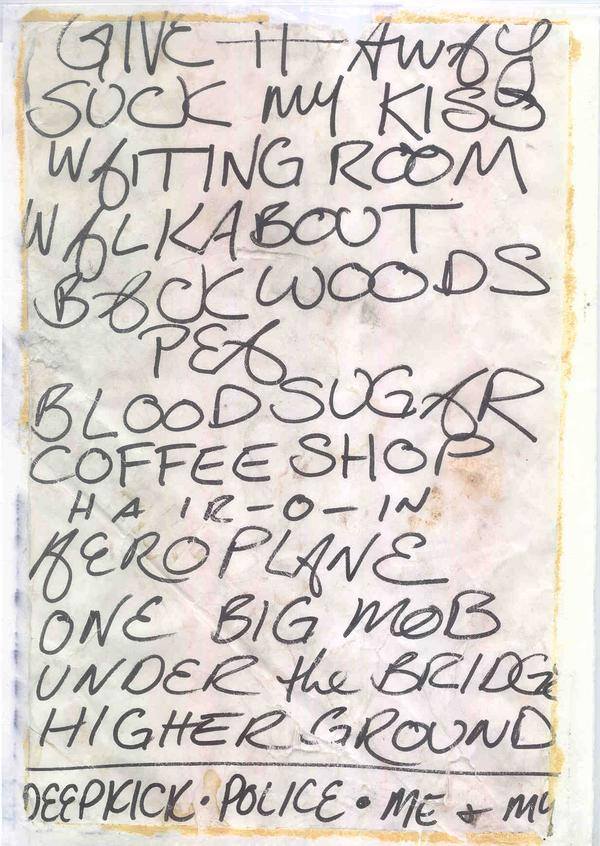 GIVE IT AWAY
SUCK MY KISS
WAITING ROOM
WALKABOUT
BACKWOODS
PEA
BLOODSUGAR
COFFEE SHOP
HAIR-O-IN
AEROPLANE
ONE BIG MOB
UNDER the BRIDGE
HIGHER GROUND
DEEPKICK • POLICE • ME + MY